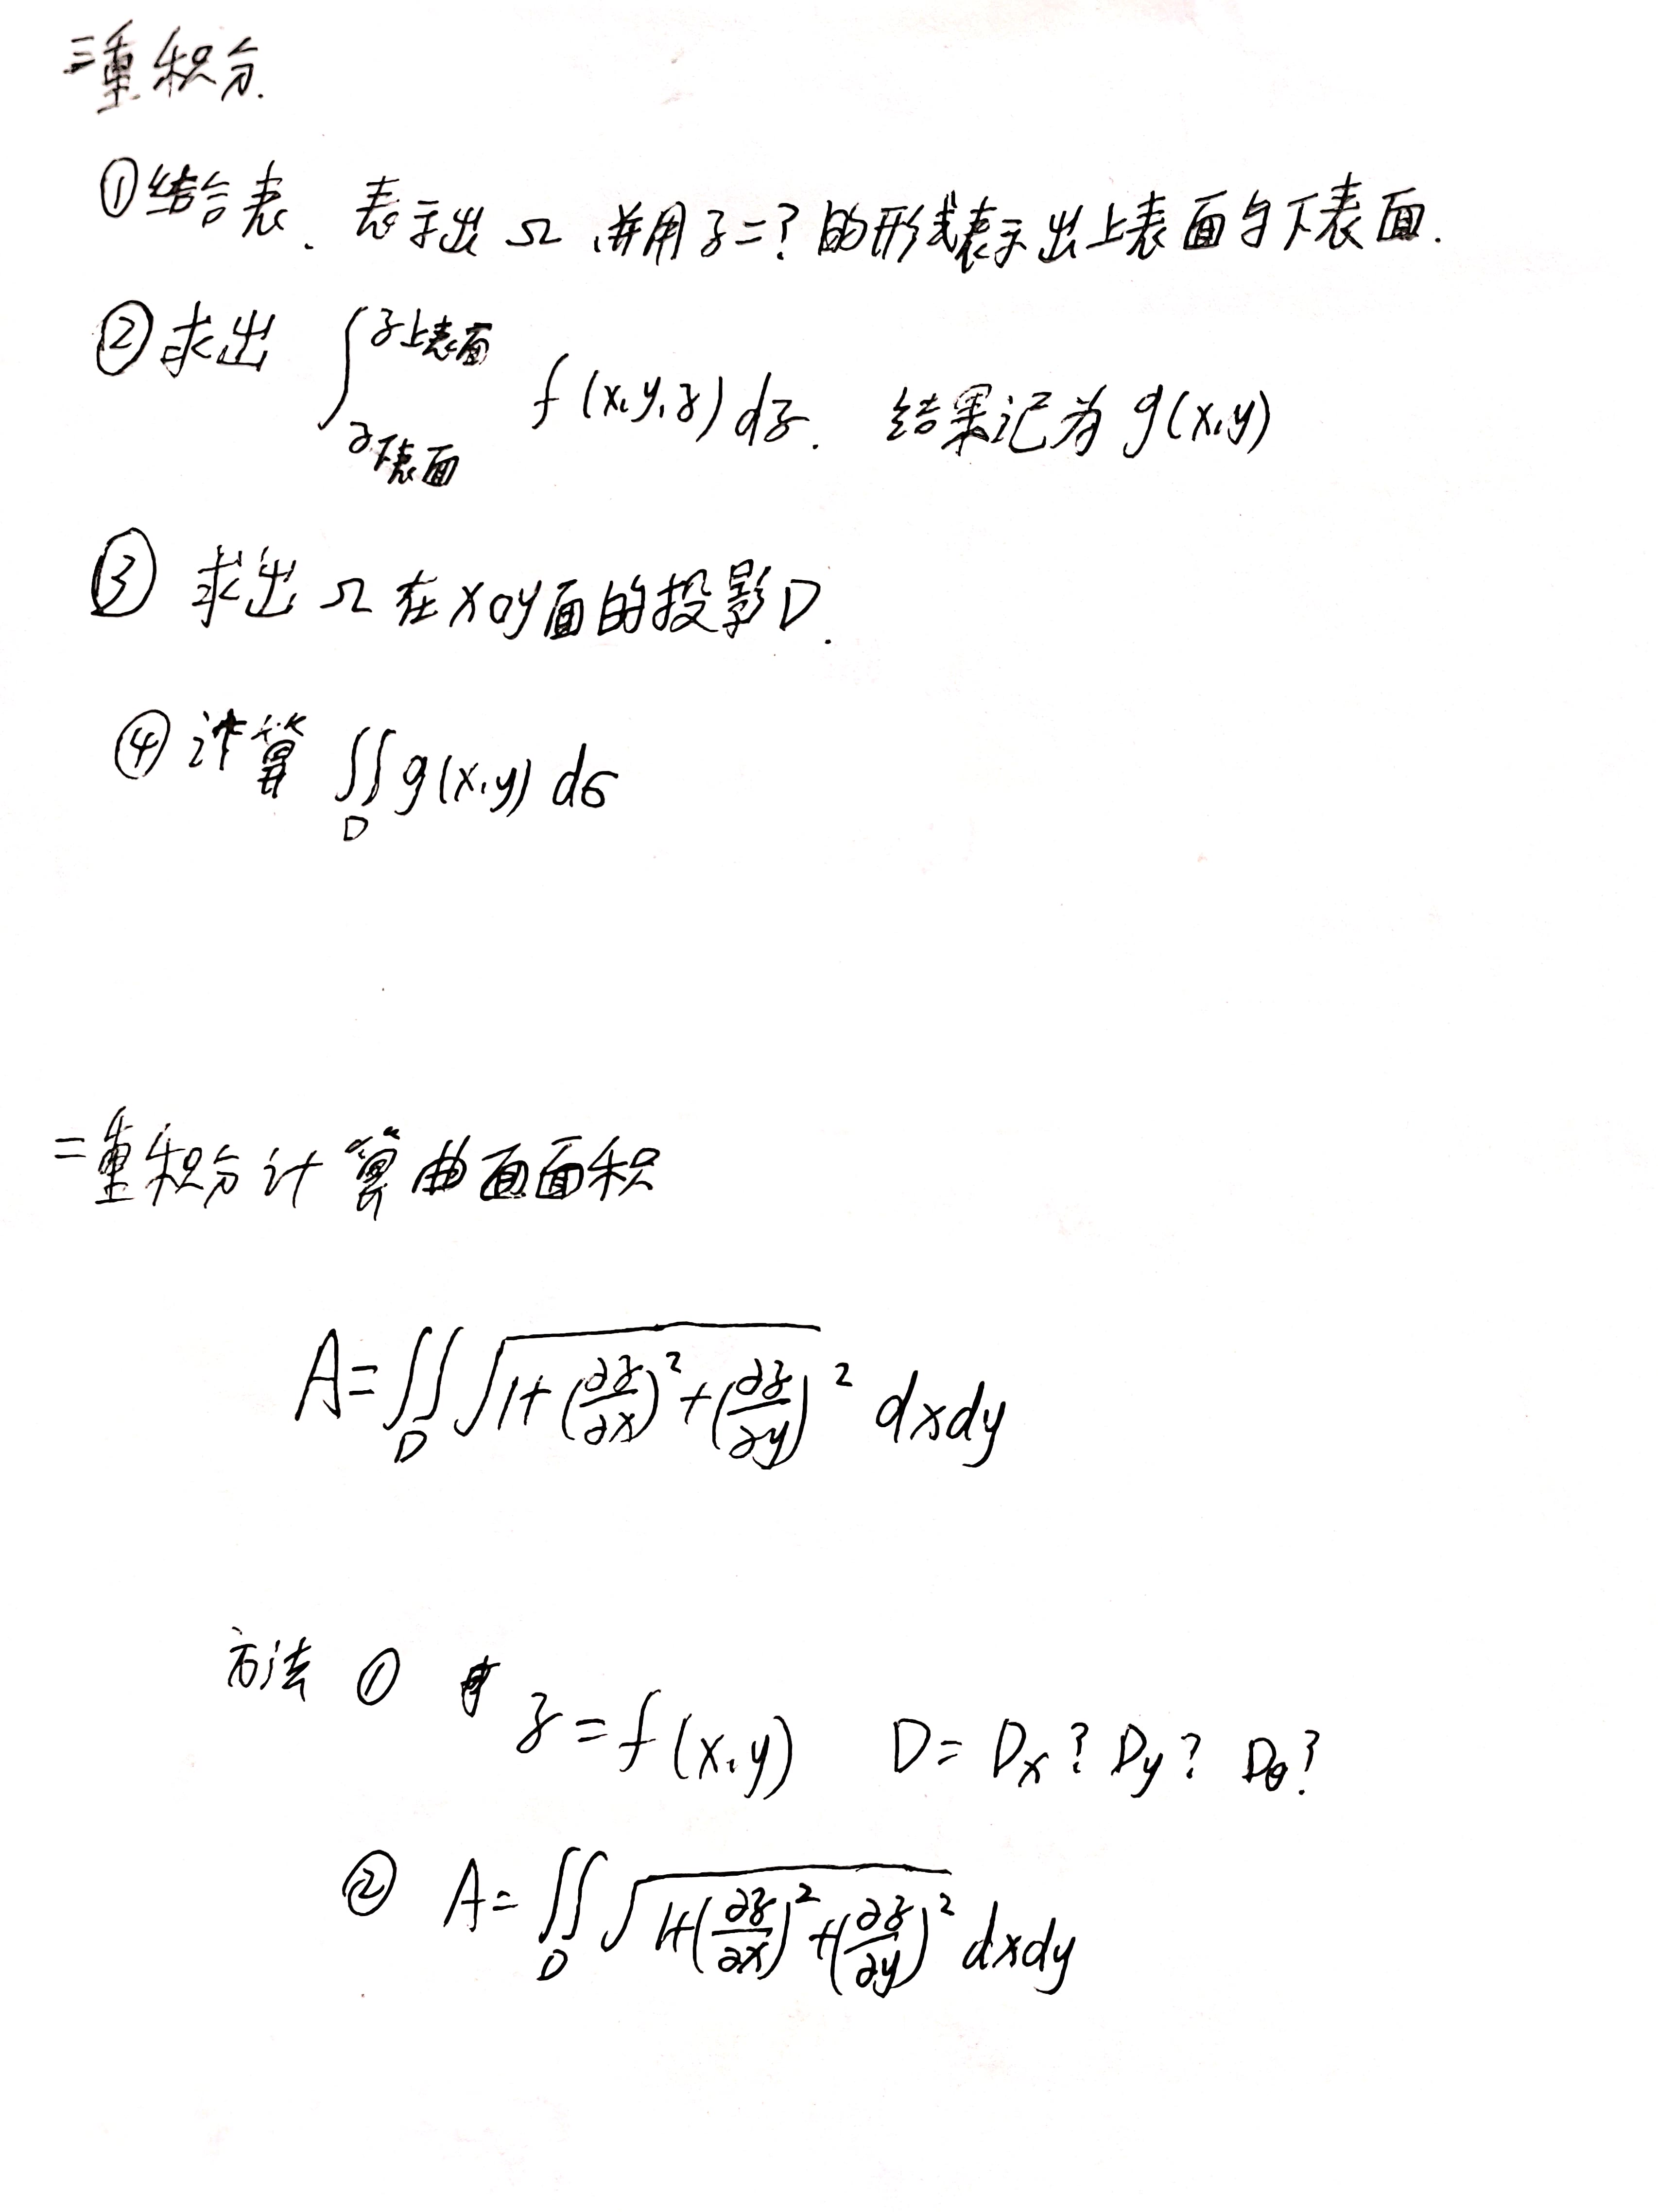 三重积分.
①结合表、表示出Ω,并用z=?的形式表示出上表面与下表面.
②求出 ∫_{z下表面}^{z上表面} f(x,y,z)dz. 结果记为g(x,y)
③ 求出Ω在xoy面的投影D.
④计算 ∬_D g(x,y)dσ
二重积分计算曲面面积
A=∬_D √(1+(∂z/∂x)²+(∂z/∂y)²) dxdy
方法 ① z=f(x,y) D=Dx?Dy?Dθ?
② A=∬_D √(1+(∂z/∂x)²+(∂z/∂y)²) dxdy